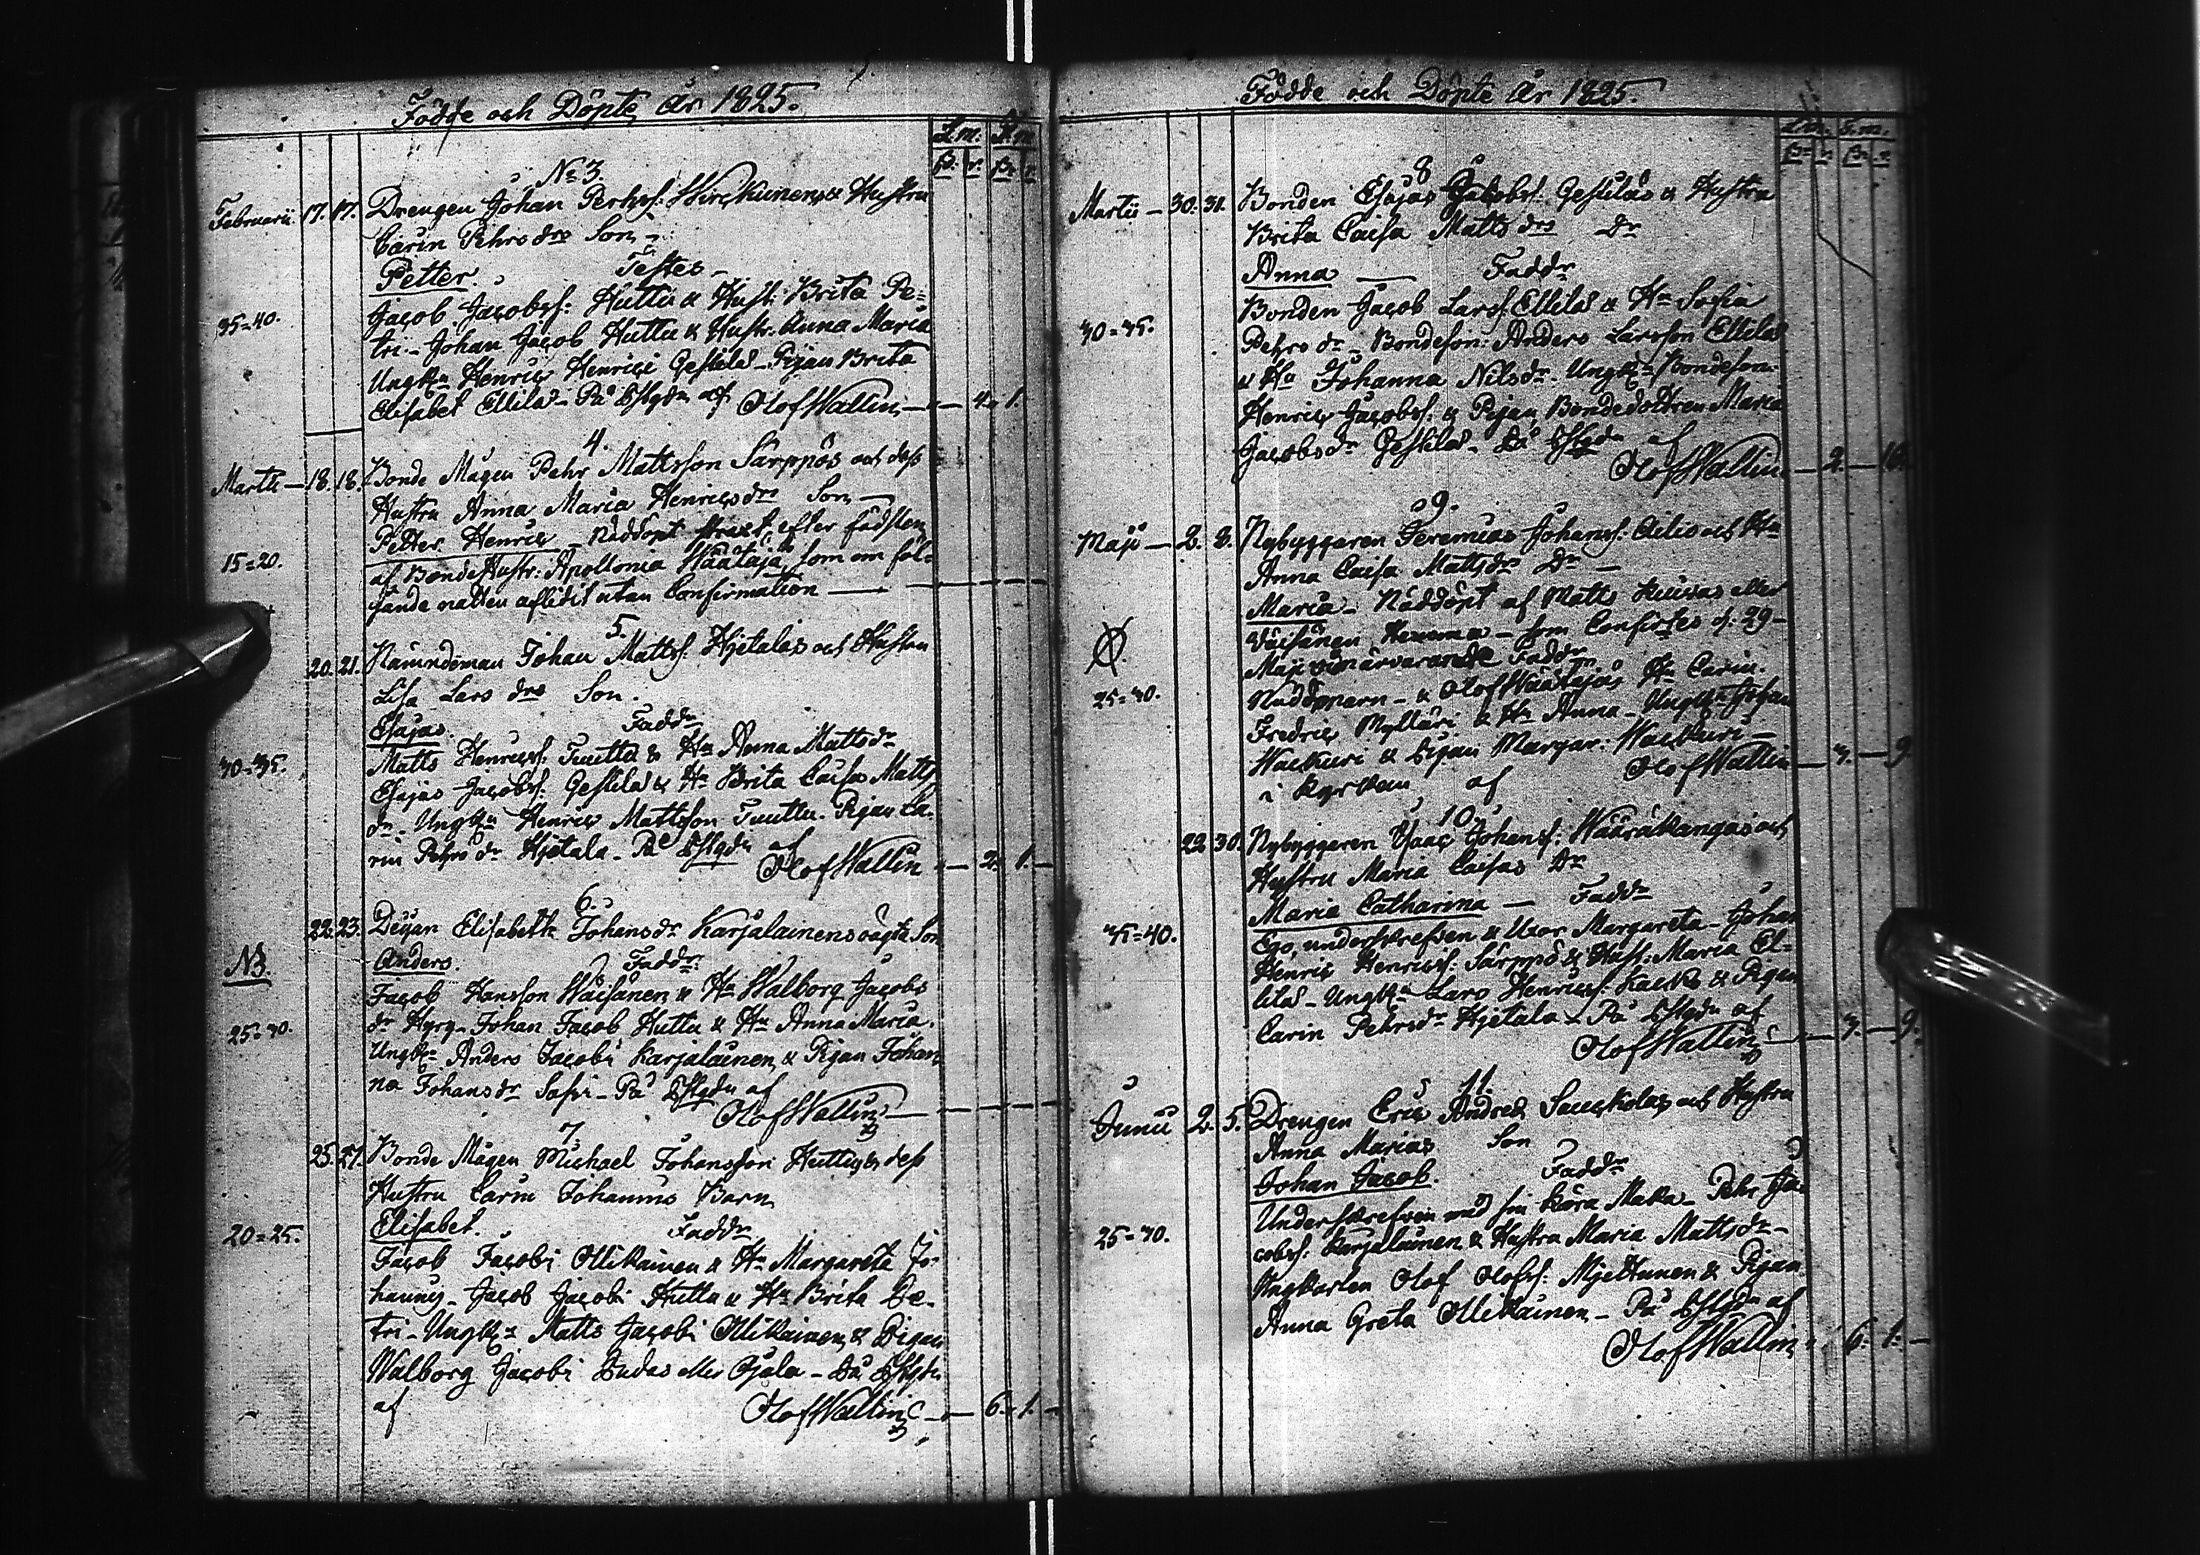 Födde och Döpte År 1825.
L.m. S.m.
β. r. β. r.
No 3.
Februarii. 17. 17. Drengen Johan Perss. & Hustru
Carin Pehrs drs Son
Petter. Testes
35=40. Jacob Jacobss: Huttu & Hustr: Brita Pe=
tri - Johan Jacob Huttu & Hustr: Anna Maria
Ungk:n Henric Henrici Gestilä - Pigan Brita
Elisabet Ellilä - På af Olof Wallin 4. 1.
4.
Martii 18. 18. Bonde Mågen Pehr Mattsson Särppös och dess
Hustru Anna Maria Henricsdrs Son
Petter Henric - Näddöpt strax efter födslen
15=20. af BondeHustr: Apollonia Wäätäjä, som om föl=
jande natten aflidit utan Confirmation
5.
20. 21. Nämndeman Johan Mattss. Hjetalas och Hustru
Lisa Lars drs Son.
Esajas. Faddr
30=35. Matts Henricss. Tuuttu & Hu Anna Mattsdr
Esajas Jacobss. Gestilä & Hu Brita Caisa Matts
dr - Ungkn Henric Mattsson Tuuttu. Pigan Ca-
rin Pehrs dr Hjetala - På af
Olof Wallin 2. 1.
6.
22. 23. Pigan Elisabeth Johansdr Karjalainens oägta Son
NB. Anders. Faddr.
Jacob Hansson Wäisänen & Hu Walborg Jacobs
25=30. dr Hyrg. Johan Jacob Huttu & Hu Anna Maria.
Ungkn Anders Jacobi Karjalainen, & Pigan Johan
na Johans dr - På af
Olof Wallin
7.
25. 27. Bonde Mågen Michael Johansson Huttus & dess
Hustru Carin Johannis Barn
Elisabet. Faddr
20=25. Jacob Jacobi Ollikainen & Hu Margareta Jo-
hannis - Jacob Jacobi Huttu & Hu Brita Pe-
tri - Ungkn Matts Jacobi Ollikainen & Pigan
Walborg Jacobi eller Ojala - På
af Olof Wallin 6. 1.
Födde och Döpte År 1825.
L.m. S.m.
β. r. β. r.
8
Martii 30. 31. Bonden Esajas Jacobss. Gestiläs & Hustru
Brita Caisa Matts drs Dr
Anna Faddr
30=35. Bonden Jacob Larss. Ellilä & Hu Sofia
Pehrs dr - Bondeson: Anders Larsson Ellilä
& Hu Johanna Nilsdr. Ungkn Bondeson.
Henric Jacobss. & Pigan Bondedottren Maria
Jacobs dr Gestilä - På af
Olof Wallin 2. 10.
9.
Maji 2. 2. Nybyggaren Jeremias Johanss. och Hu
Anna Caisa Mattsdrs Dr
Maria - Näddöpt af Matts eller
Väisänen Hemma - som Confirtes d. 29
Maji vid närvarande Faddr
25=30. Näddöparn - & Olof Wäätäjäs Hu Carin.
Fredric Mylläri & Hu Anna - Ungkn Johan
& Pigan Margar:
i Kyrkan af Olof Wallin 3. 9
10.
22 30. Nybyggaren Isaac Johanss: Wääräkangas och
Hustru Maria Caisas Dr
Maria Catharina Faddr
35=40. Ego, underskrefven & Uxor Margareta - Johan
Henric Henricss. Särppö & Hust: Maria El-
lilä - Ungkn Lars Henricss. & Pigan
Carin Pehrsdr Hjetala - På af
Olof Wallin 3. 9.
11.
Junii 2. 5. Drengen Eric Andreæ och Hustru
Anna Marias Son
Johan Jacob. Faddr
Underskrefven med sin Kära Maka - Pehr Ja-
25=30. cobss: Karjalainen & Hustru Maria Mattsdr
Ungkarlen Olof Olofss: Mjettunen & Pigan
Anna Greta Ollikainen - På af
Olof Wallin 6. 1.